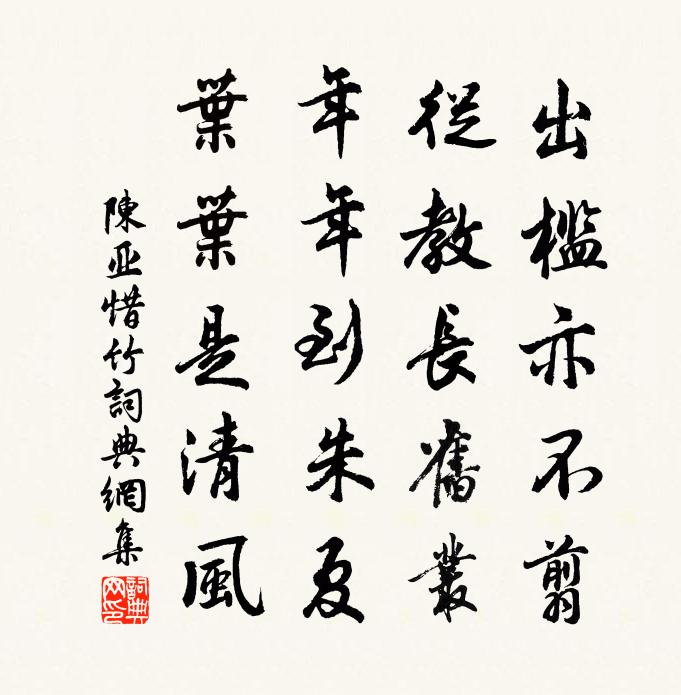 出檻亦不翦
從教長舊叢
年年到朱夏
葉葉是清風
陳亚惜竹詞典網集
詞典網印